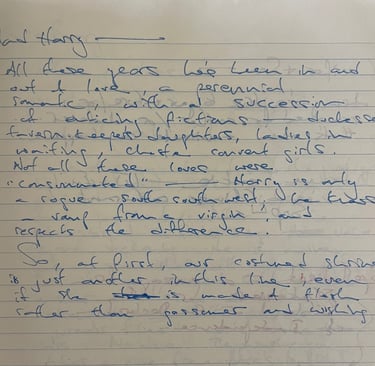 and Harry ———
All these years he's been in and
out of love, a perennial
romantic, with a succession
of enticing fictions — duchesses
tavern-keepers' daughters, ladies in
waiting, chaste convent girls.
Not all these loves were
"consummated" —— Harry is only
a rogue south southwest, he knows
a vamp from a virgin, and
respects the difference.
So, at first, our costumed
is just another in this line, even
if she is made of flesh
rather than gossamer and wishing